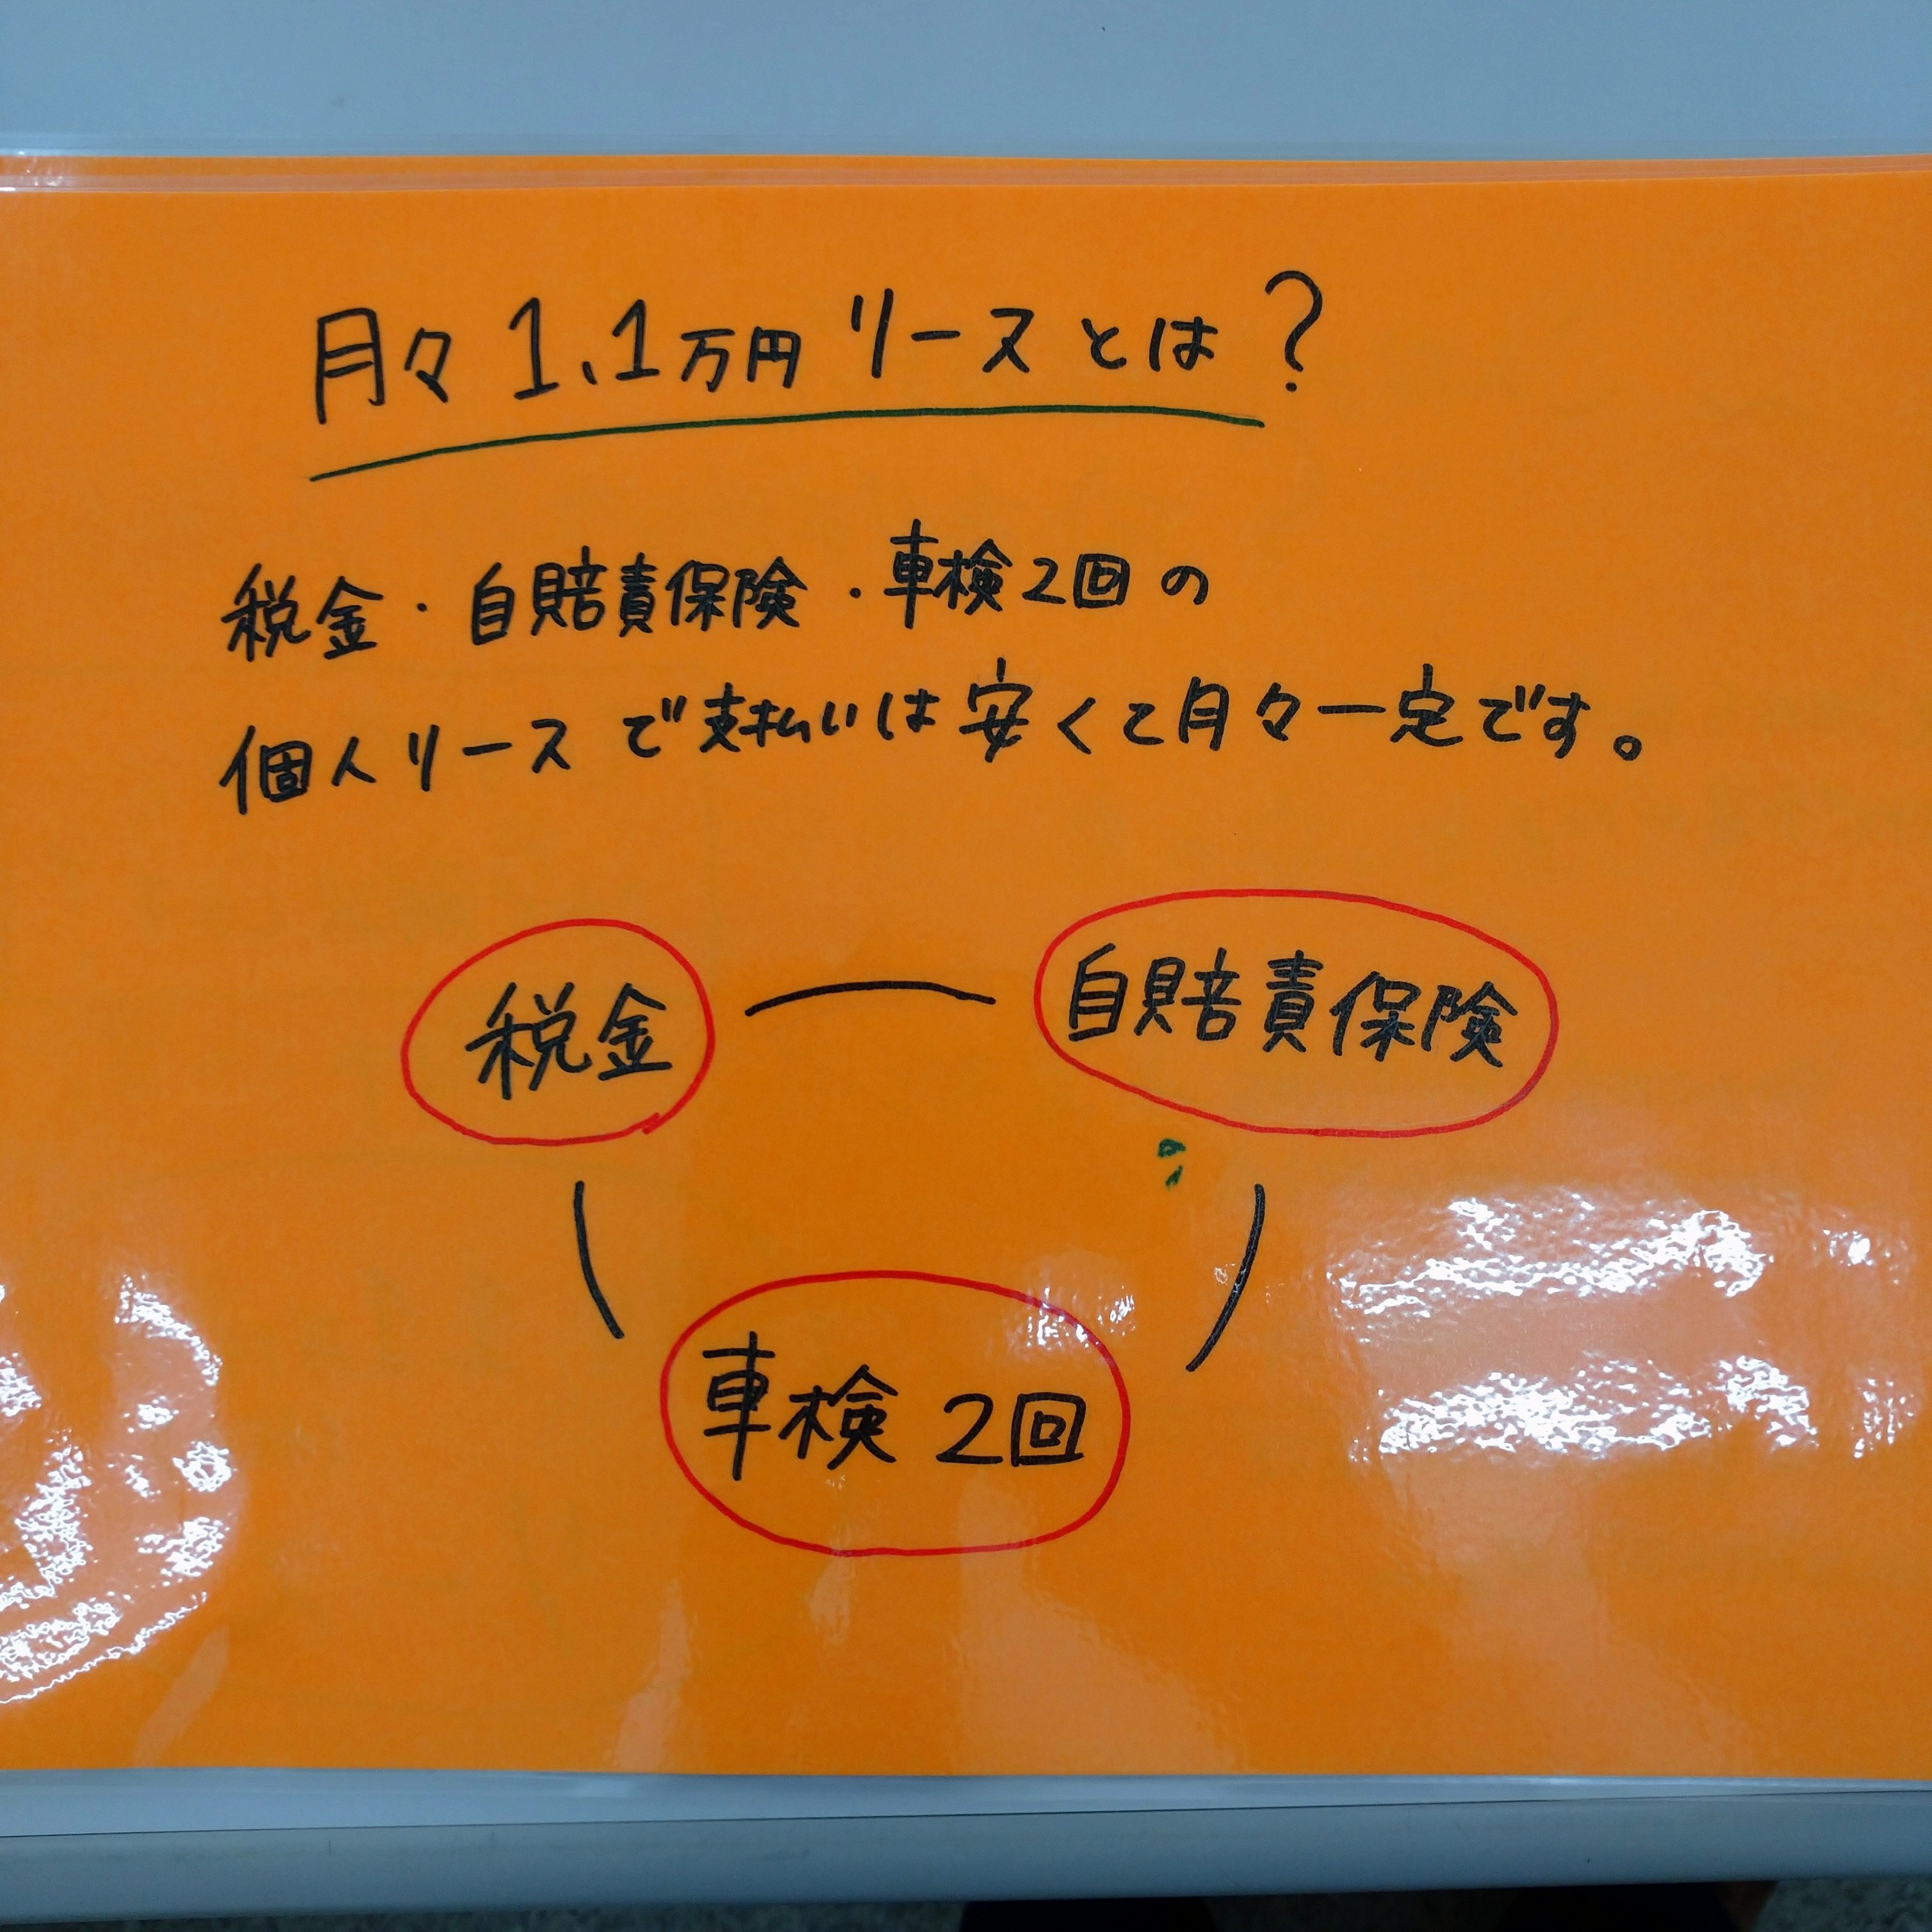 月々1.1万円リースとは？
税金・自賠責保険・車検2回の
個人リースで支払いは安くて月々一定です。
税金
自賠責保険
車検2回